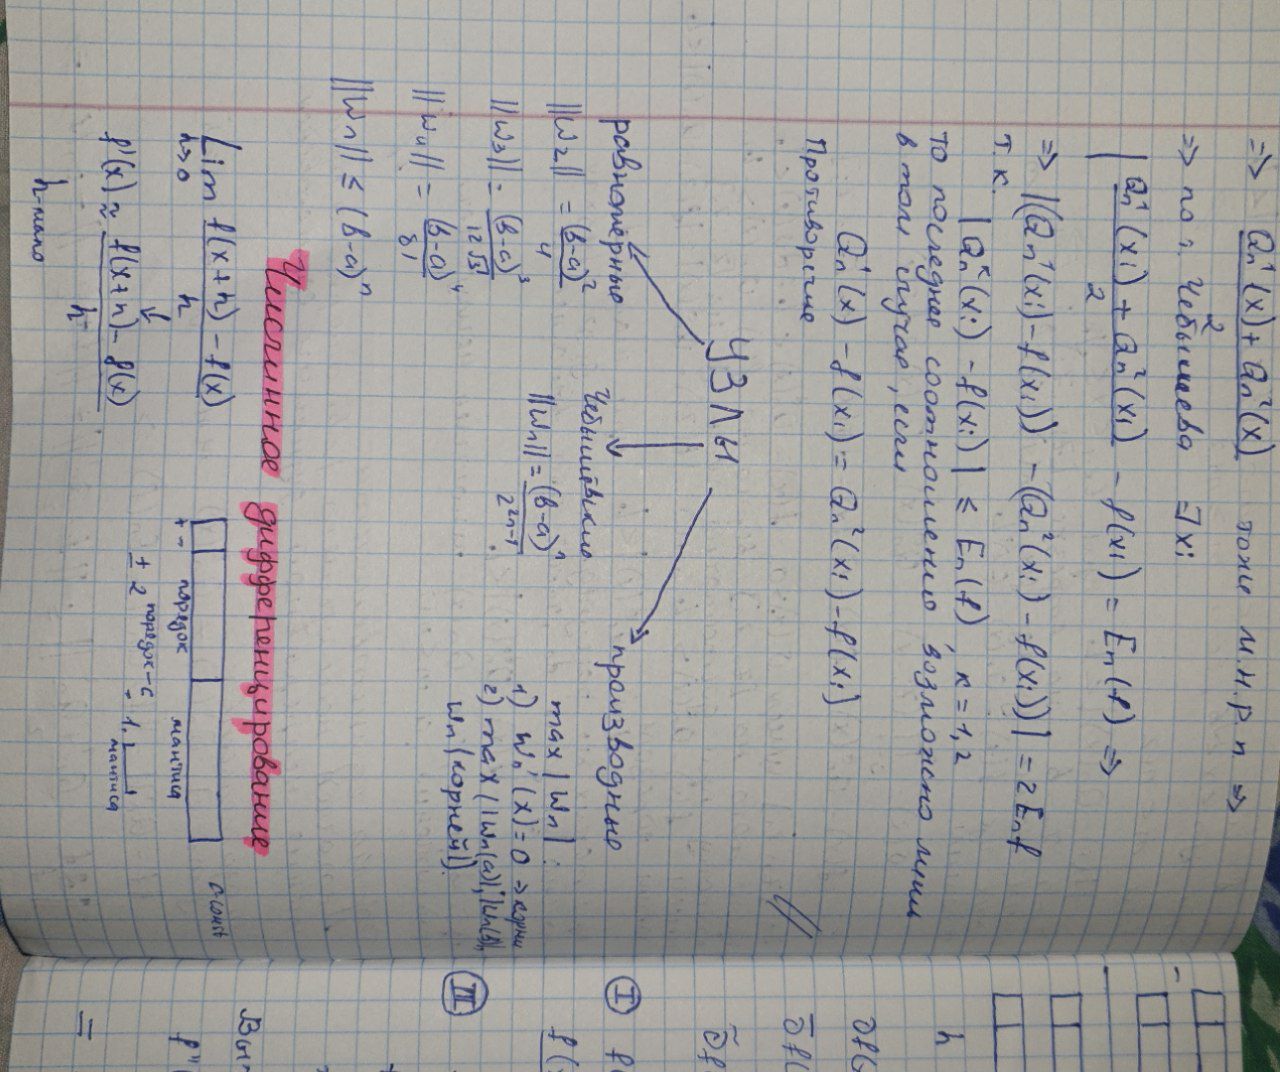 => (Qn¹(x) + Qn²(x))/2 тоже м.н.р.п. =>
=> по т. Чебышева ∃ xi
|(Qn¹(xi) + Qn²(xi))/2 - f(xi) = En(f) =>
=> |(Qn¹(xi) - f(xi)) - (Qn²(xi) - f(xi))| = 2Enf
т.к.
|Qnᵏ(xi) - f(xi)| ≤ En(f), к = 1,2
то последнее соотношение возможно лишь
в том случае, если
Qn¹(x) - f(xi) = Qn²(xi) - f(xi)
Противоречие //
УЗЛЫ
равномерные
||W2|| = (b-a)²/4
||W3|| = (b-a)³/12√3
||W4|| = (b-a)⁴/81
||Wn|| ≤ (b-a)ⁿ
Чебышевские
||Wn|| = (b-a)ⁿ/2²ⁿ⁻¹
производные
max |Wn| :
1) Wn'(x) = 0 → корни
2) max (|Wn(a)|; |Wn(b)|,
Wn |корней|).
Численное дифференцирование
Lim h→0 (f(x+h) - f(x))/h
f'(x) ≈ (f(x+h) - f(x))/h
h-мало
c-const
+ - порядок мантиса
± 2^(порядок-c) · 1. мантиса
h
δf(
δ̅f(
δ̃f(
I f(
f(
III
Выч
f"(
=